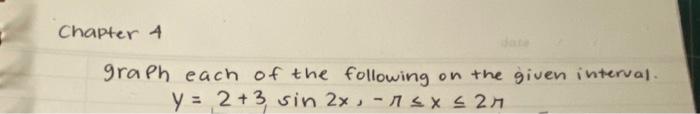 Chapter 4
date
graph each of the following on the given interval.
y = 2+3 sin 2x, -π ≤ x ≤ 2π